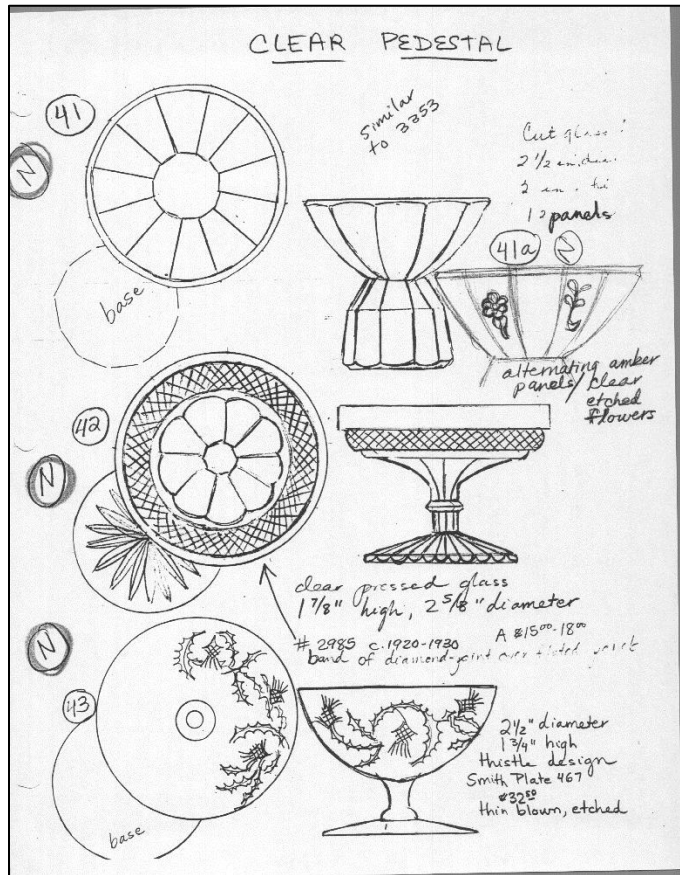 CLEAR PEDESTAL
41
N
Similar
to 3353
Cut glass:
2 1/2 in. dia.
2 in. hi
12 panels
41a N
base
alternating amber
panels / clear
etched
flowers
42
N
clear pressed glass
1 7/8" high, 2 5/8" diameter
# 2985 c. 1920-1930 A $15.00-18.00
band of diamond-point over
N
43
2 1/2" diameter
1 3/4" high
thistle design
Smith Plate 467
$32.50
thin blown, etched
base